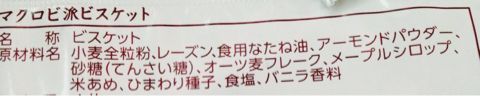 マクロビ派ビスケット
名 称 ビスケット
原材料名 小麦全粒粉、レーズン、食用なたね油、アーモンドパウダー、
砂糖(てんさい糖)、オーツ麦フレーク、メープルシロップ、
米あめ、ひまわり種子、食塩、バニラ香料